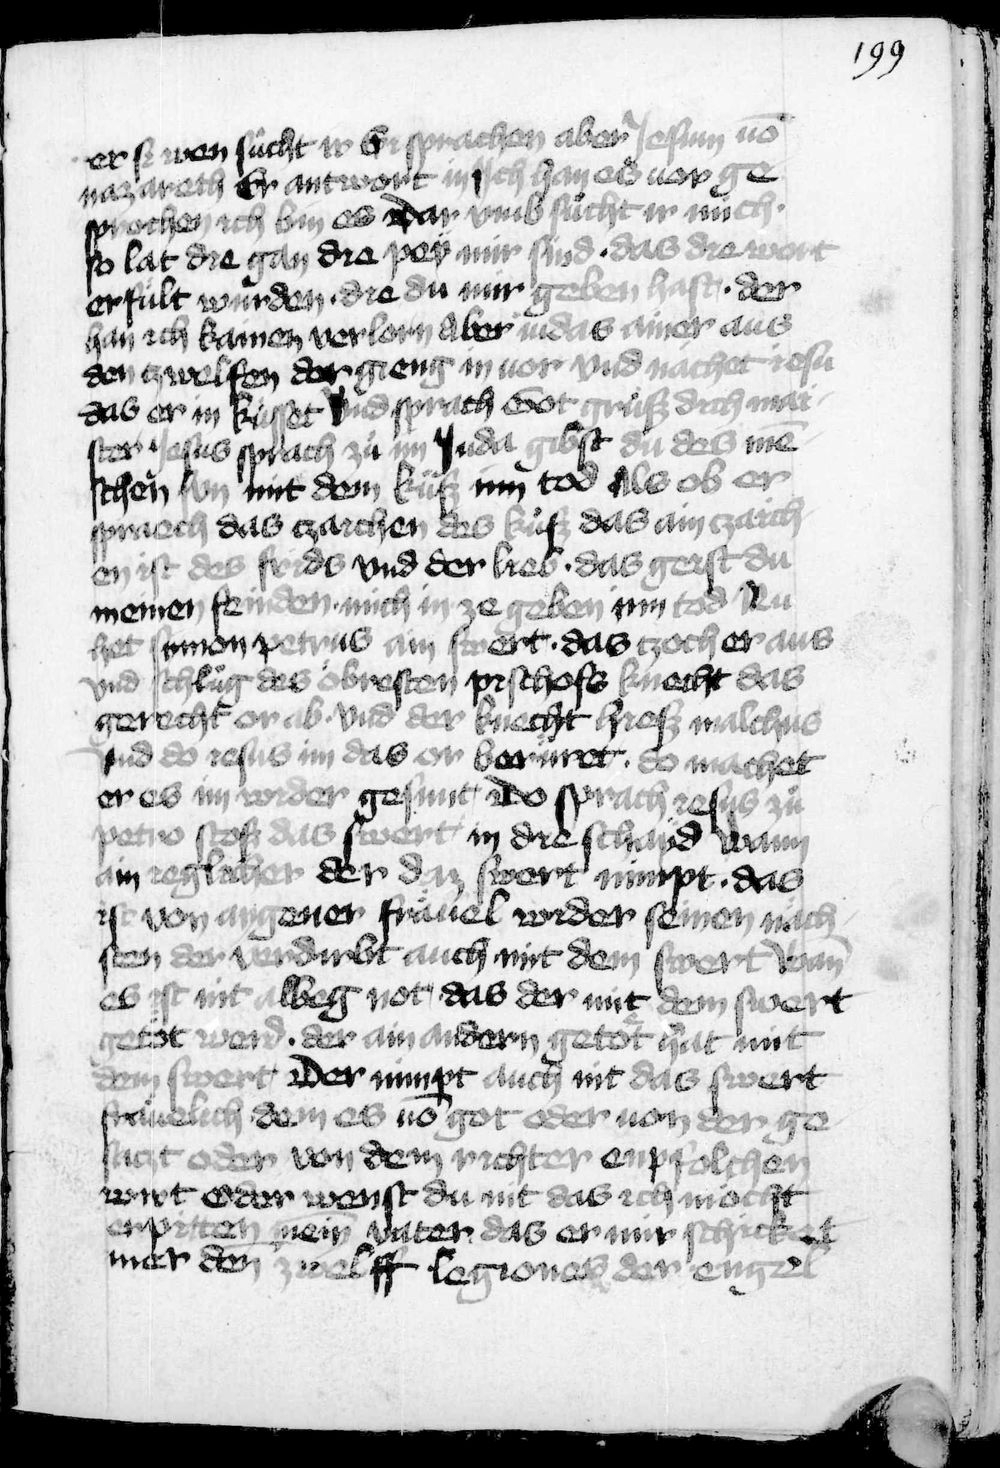 199
er si wen sücht ir Si sprachen aber Jesum uō
nazareth Er antwort in Ich han es uor ge
sprochen ich bin es Dar vmb sücht ir mich·
so lat die gan die pey mir sind · das die wort
erfült würden · die du mir geben hast · der
han ich kainen verlorn Aber iudas ainer aus
den czwelfen der gieng in uor vnd nachet iesu
das er in küsset Vnd sprach Got grüsz dich mai-
ster Jesus sprach zü im Juda gibst du des mē-
schen sun mit dem küsz inn tod Als ob er
spraech das czaichen des küsz das ain czaich-
en ist des frids vnd der lieb · das geist du
meinen feinden · mich in ze geben inn tod Nu
het simon petrus ain swert · das czoch er aus
vnd schlüg des öbresten pischofs knecht das
gerecht or ab · vnd der knecht hiesz malchus
Vnd do iesus im das or berüret · do machet
er es im wider gesunt Do sprach iesus zü
petro stosz das swert in die schaid Wann
ain ieglicher der daz swert nimpt · das
ist von aygener fräuel wider seinen näch
sten der verdirbt auch mit dem swert Wan̄
es ist nit allweg not das der mit dem swert
getöt werd · der ain andern getöt hat mit
dem swert Der nimpt auch nit das swert
fräuelich dem es uō got oder uon der ge
saczt oder von dem richter enpfolchen
wirt Oder wenst du nit das ich möcht
erpitten mein̄ vater das er mir schicket
mer den zwelff legiones der engel